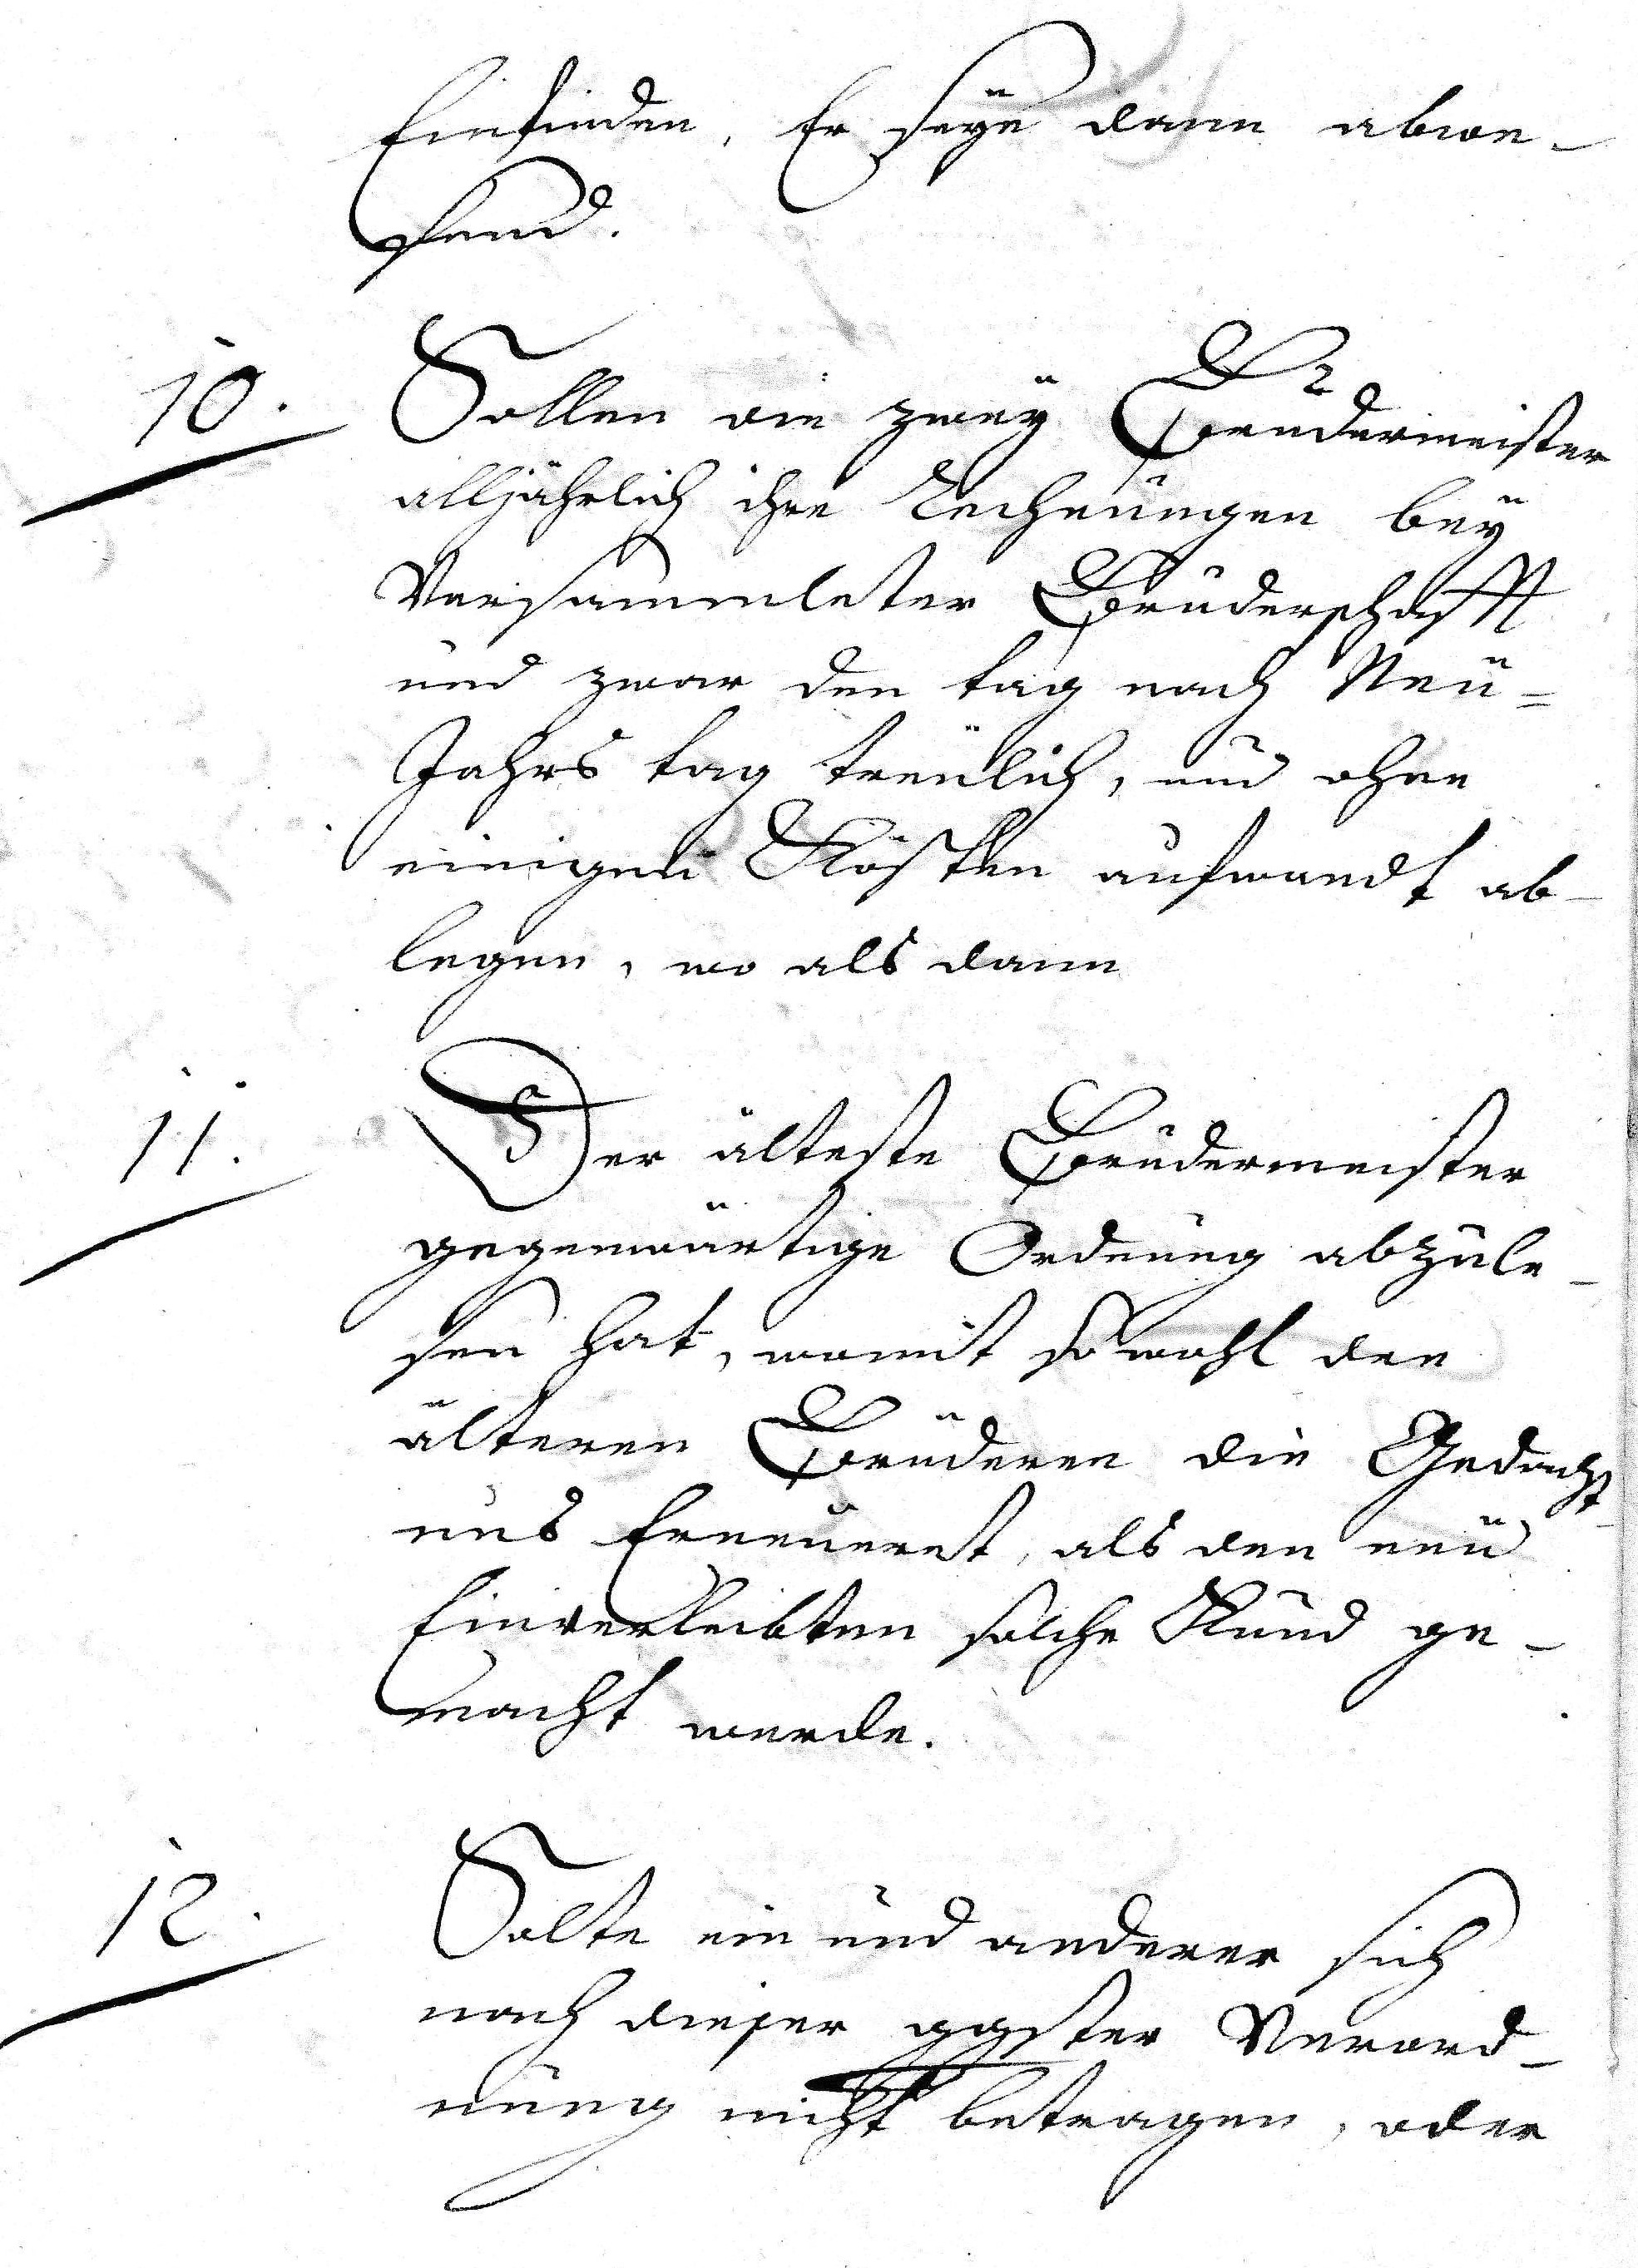 Einfinden, Er seÿe dann abwe-
send.
10. Sollen die zweÿ Brudermeister
alljährlich ihre Rechnungen beÿ
Versammleter Bruderschafft
und zwar den tag nach Neü=
Jahrs tag treülich, und ohne
einigen Kösten aufwandt ab-
legen, wo als dann
11. Der älteste Brudermeister
gegenwärtige Ordnung abzule-
sen hat, womit so wohl den
älteren Brüderen die Gedächt-
nus Erneueret, als den neü
Einverleibten solche Kund ge-
macht werde.
12. Solte ein und anderer sich
nach dieser ggster Verord-
nung nicht betragen, oder